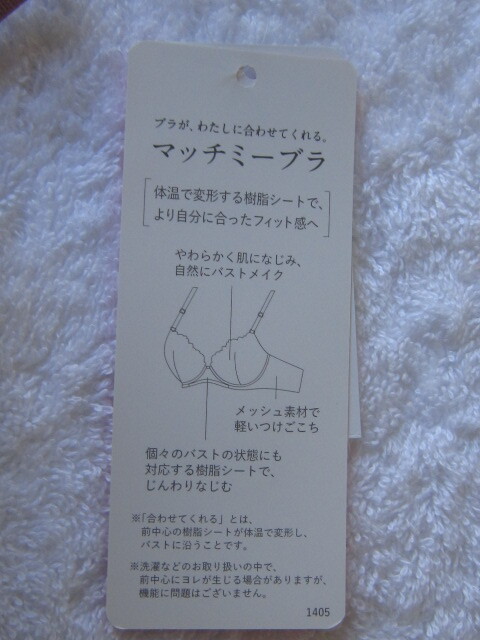 ブラが、わたしに合わせてくれる。
マッチミーブラ
体温で変形する樹脂シートで、
より自分に合ったフィット感へ
やわらかく肌になじみ、
自然にバストメイク
メッシュ素材で
軽いつけごこち
個々のバストの状態にも
対応する樹脂シートで、
じんわりなじむ
※「合わせてくれる」とは、
前中心の樹脂シートが体温で変形し、
バストに沿うことです。
※洗濯などのお取り扱いの中で、
前中心にヨレが生じる場合がありますが、
機能に問題はございません。
1405